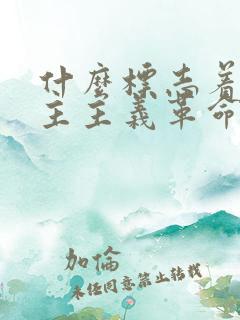 什麼標志着
主主義革命
加倫
未经同意禁止转载